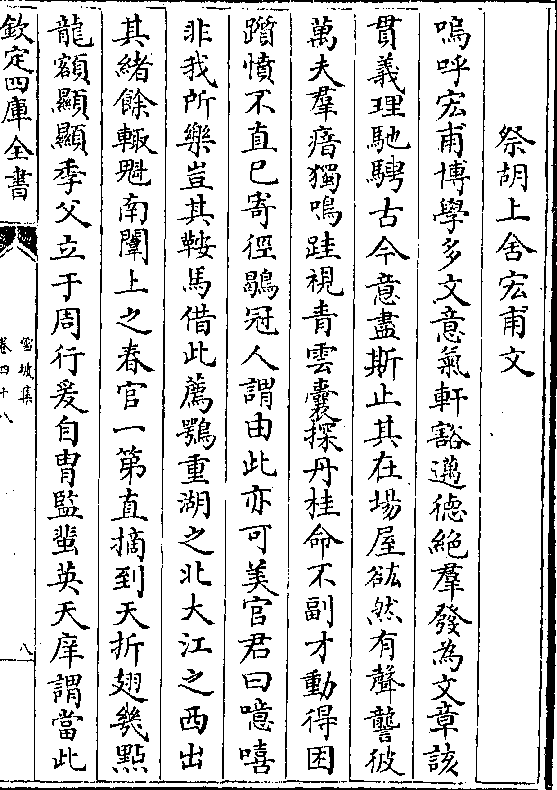 祭胡上舍宏甫文
嗚呼宏甫博學多文意氣軒豁邁德絕羣發為文章該
貫義理馳騁古今意盡斯止其在場屋紘然有聲讋彼
萬夫羣瘖獨鳴跬視青雲囊探丹桂命不副才動得困
躓憤不直已寄徑鶡冠人謂由此亦可美官君曰噫嘻
非我所樂豈其鞍馬借此薦鶚重湖之北大江之西出
其緒餘輙魁南闈上之春官一第直摘到天折翅幾㸃
龍額顯顯季父立于周行爰自胄監蜚英天庠謂當此
欽定四庫全書
雪坡集
卷四十八
八